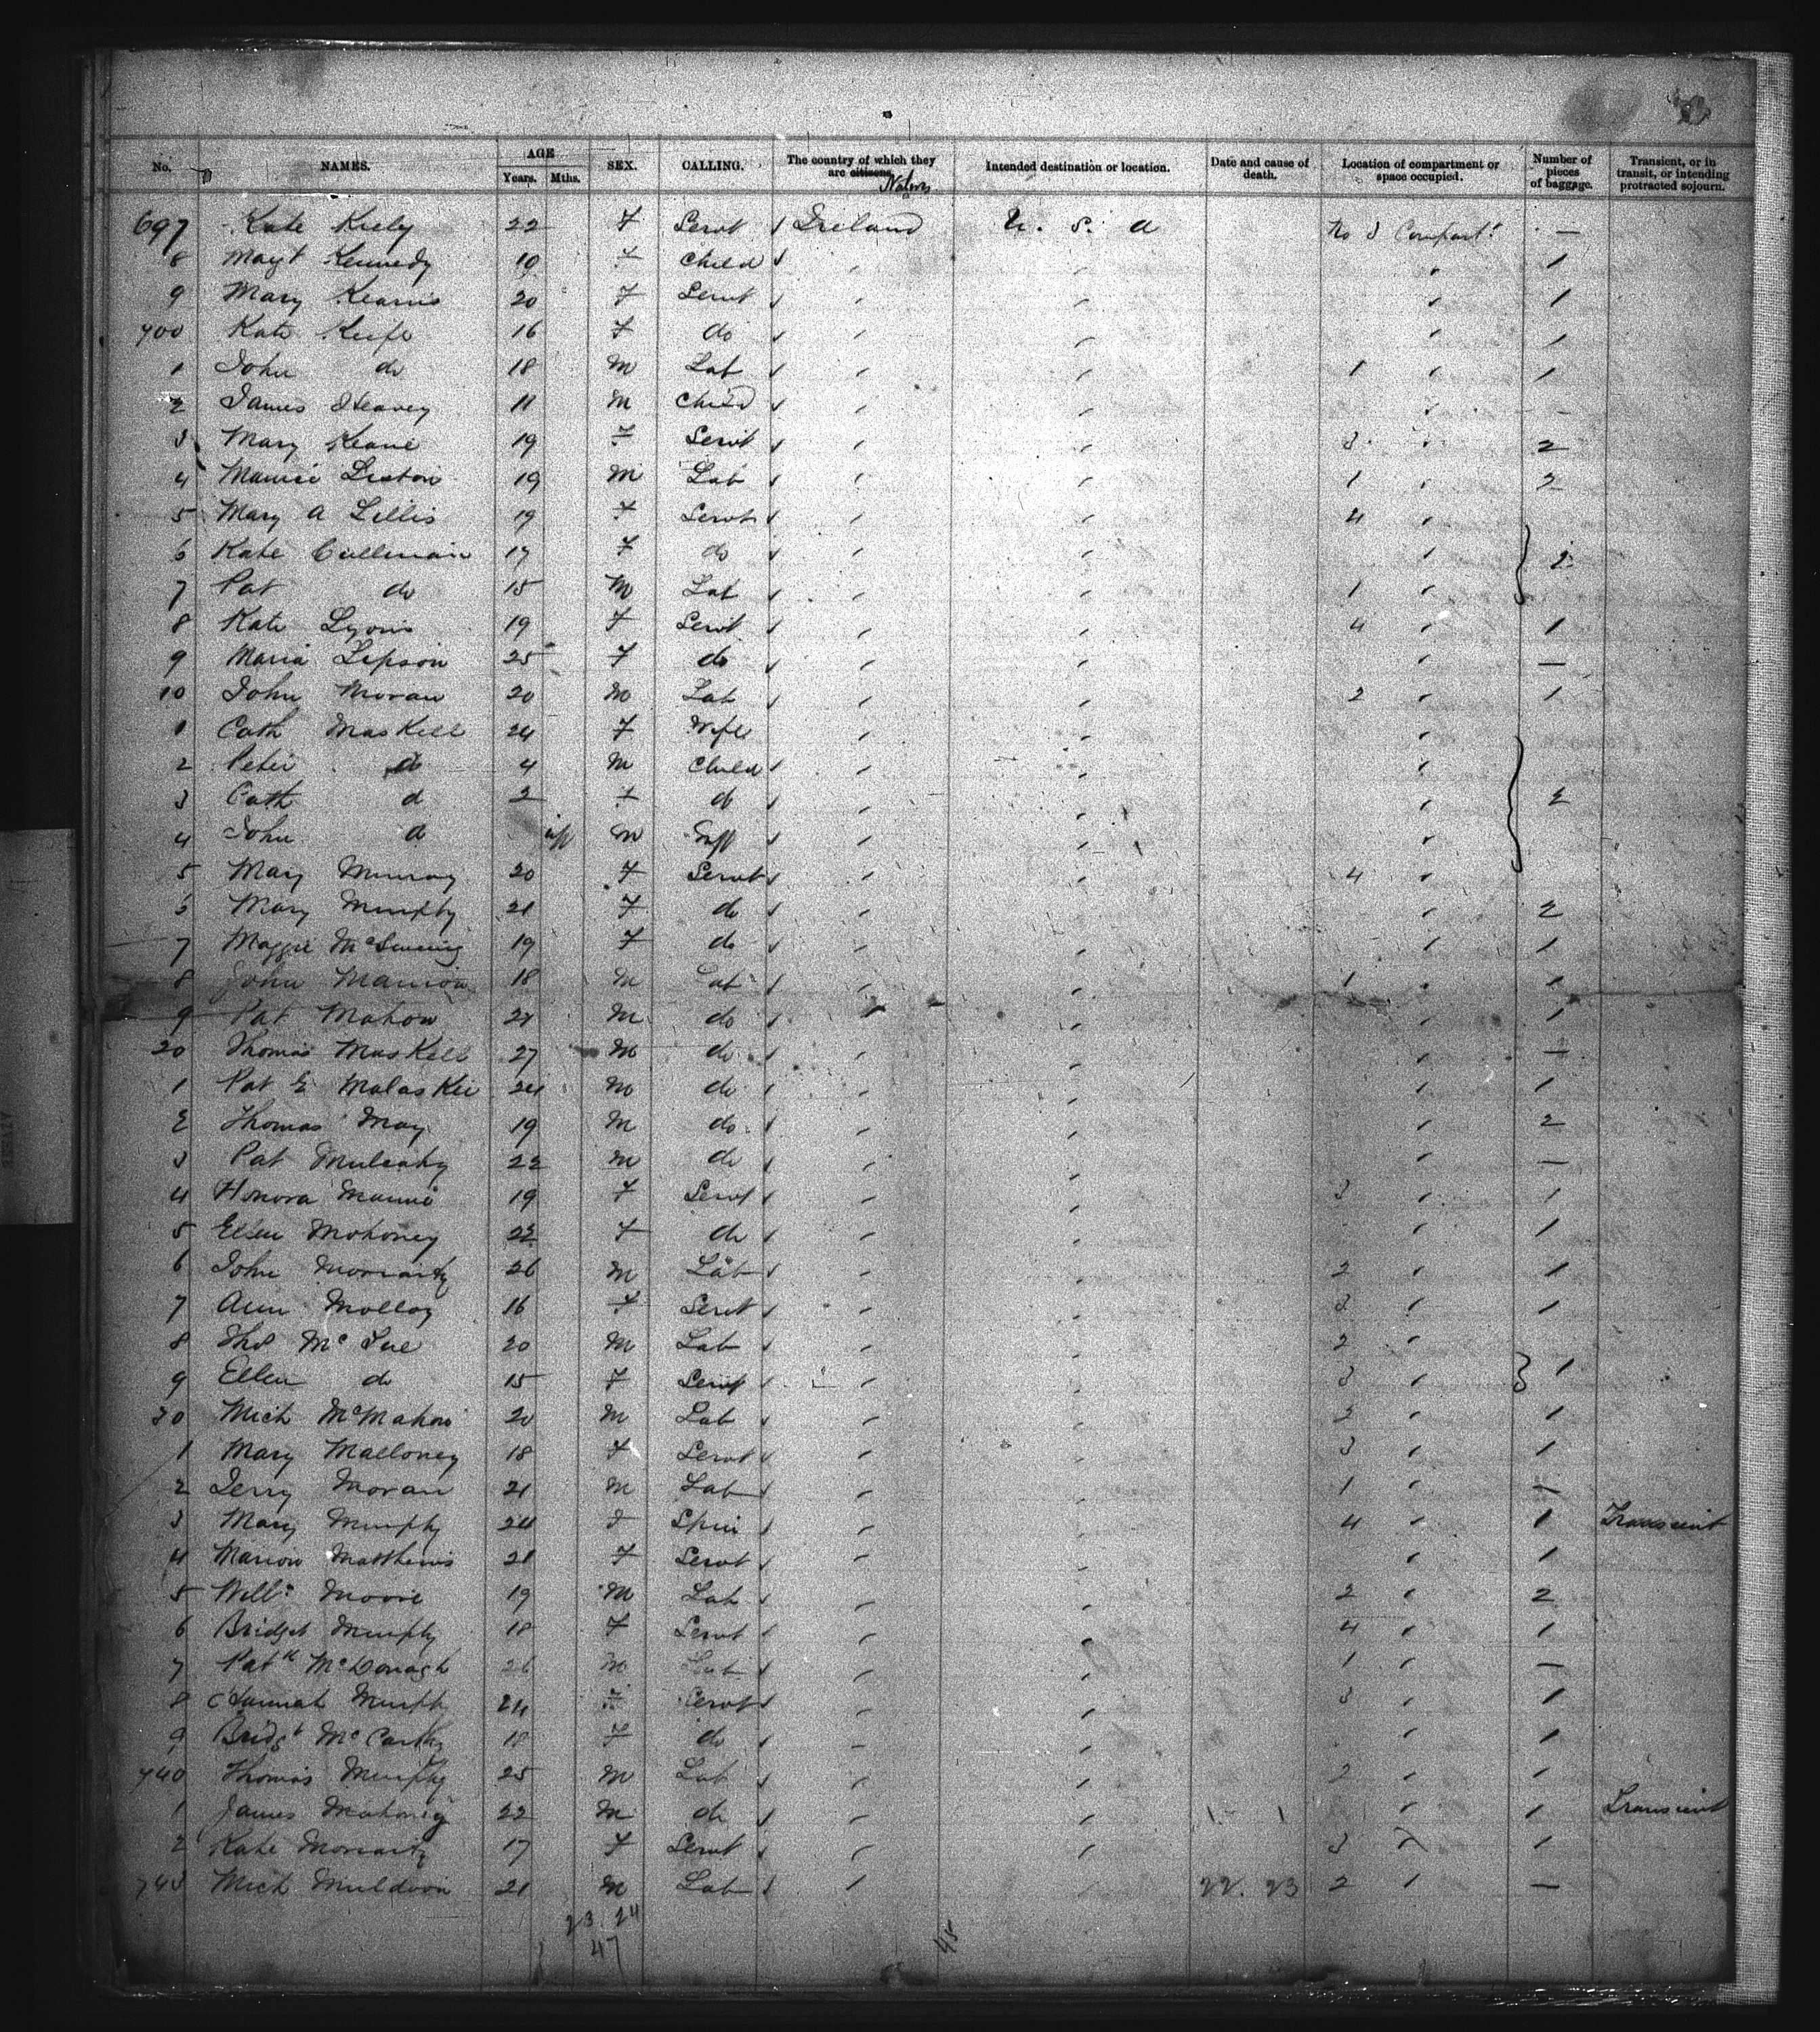 No. NAMES. AGE Years. Mths. SEX. CALLING. The country of which they are citizens. Natives Intended destination or location. Date and cause of death. Location of compartment or space occupied. Number of pieces of baggage. Transient, or in transit, or intending protracted sojourn.
697 Kate Kiely 22 F Servt Ireland U. S. A No 3 Compart! —
8 Magt Kennedy 10 F Child 1
9 Mary Kearns 20 F Servt 1
700 Kate Keife 16 F do 1
1 John do 18 M Lab 1 1
2 James 11 M Child —
3 Mary Keane 19 F Servt 3 2
4 Liston 19 M Lab 1 2
5 Mary A Lillis 19 F Servt 4
6 Kate Cullinan 17 F do 2
7 Pat do 15 M Lab 1
8 Kate Lyons 19 F Servt 4 1
9 Maria Lipson 25 F do —
10 John Moran 20 M Lab 2 1
1 Cath Maskell 24 F Wife
2 Peter do 4 M Child
3 Cath d 2 F do 2
4 John d inf M Inft
5 Mary Murray 20 F Servt 4
6 Mary Murphy 21 F do 2
7 Maggie McSweeney 19 F do 1
8 John Mannion 18 M Lab 1 1
9 Pat Mahon 21 M do 1
20 Thomas Maskell 27 M do —
1 Pat E Malaskee 24 M do 1
2 Thomas May 19 M do 2
3 Pat Mulcahy 22 M do —
4 Honora 19 F Servt 3 1
5 Ellen Mahoney 22 F do 1
6 John Moriarty 26 M Lab 2 1
7 Ann Molloy 16 F Servt 3 1
8 Thos Mc 20 M Lab 2
9 Ellen do 15 F Servt 3 1
30 Mich McMahon 20 M Lab 2 1
1 Mary Malloney 18 F Servt 3 1
2 Jerry Moran 21 M Lab 1 —
3 Mary Murphy 24 F Spin 4 1 Transient
4 Marion Matthews 21 F Servt 1
5 Willm Moore 19 M Lab 2 2
6 Bridget Murphy 18 F Servt 4 1
7 Patk McDonagh 26 M Lab 1 —
8 Hannah Murphy 24 F Servt 3 1
9 Bridgt McCarthy 18 F do 1
740 Thomas Murphy 25 M Lab 2 1
1 James Mahoney 22 M do 1 Transient
2 Kate Moriarty 17 F Servt 3 1
743 Mich Muldoon 21 M Lab 22. 23 2 —
23 24
47
45